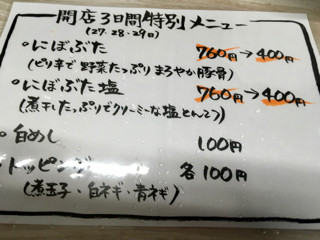 開店3日間特別メニュー
(27.28.29日)
・にぼぶた 760円→400円
(ピリ辛で野菜たっぷりまろやか豚骨)
・にぼぶた塩 760円→400円
(煮干したっぷりでクリーミーな塩とんこつ)
・白めし 100円
・トッピング 各100円
(煮玉子・白ネギ・青ネギ)